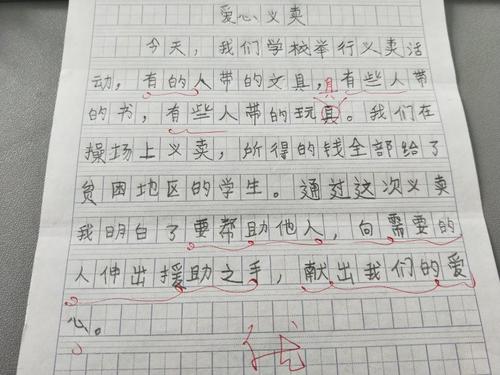 爱心义卖
今天，我们学校举行义卖活
动，有的人带的文具，有些人带
的书，有些人带的玩具。我们在
操场上义卖，所得的钱全部给了
贫困地区的学生。通过这次义卖
我明白了要帮助他人，向需要的
人伸出援助之手，献出我们的爱
心。